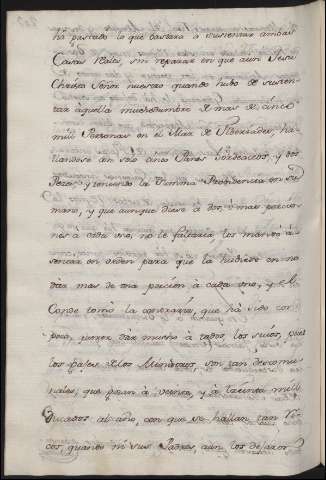 ha pasado lo que bastara à sustentar ambas
Casas Reales, sin reparar en que aun Jesu
Christo Señor nuestro quando hubo de susten
tar aquella muchedumbre de mas de cinco
mill Personas en el Mar de Tiberiades, ha
llandose sin solo cinco Panes bordeaceos, y dos
Pezes, y teniendo la summa Providencia en su
mano, y que aunque diese à dos, ò mas porcio
nes à cada uno, no le faltaria, los mandò à
sentar en orden para que la hubiese en no
dar mas de una porcion à cada uno, y el
Conde tomò la contraria, que ha sido con
poco, querer dar mucho à todos los suios, pues
los gajes de los Ministros son tan descomu
nales, que pasan à veinte, y à treinta mill
Ducados al año, con que se hallan tan ri
cos, quando ni sus Padres, aun los dejaron